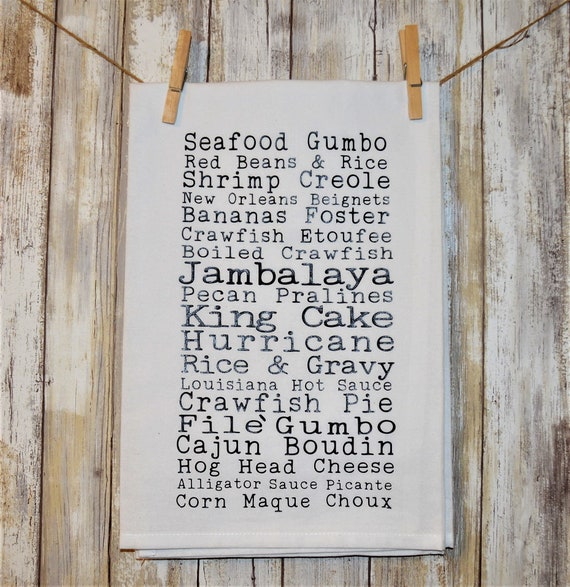 Seafood Gumbo
Red Beans & Rice
Shrimp Creole
New Orleans Beignets
Bananas Foster
Crawfish Etoufee
Boiled Crawfish
Jambalaya
Pecan Pralines
King Cake
Hurricane
Rice & Gravy
Louisiana Hot Sauce
Crawfish Pie
File` Gumbo
Cajun Boudin
Hog Head Cheese
Alligator Sauce Picante
Corn Maque Choux